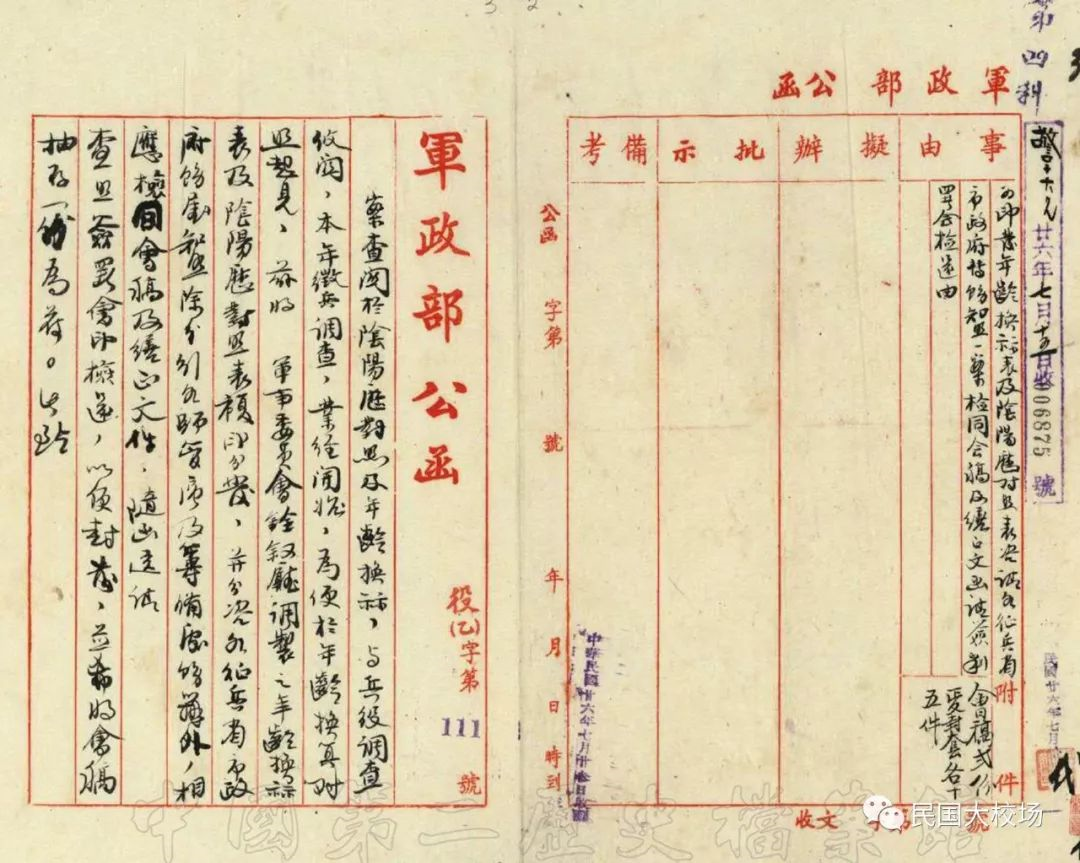 第四科
廿六年七月十五日收06875號
軍政部公函
事由
為印發年齡換祘表及陰陽曆對照表咨請各征兵省
市政府轉飭知照一案檢同会稿及繕正文函請簽判
署会檢還由
附件
会稿弍份
封套各十
五件
擬辦
批示
備考
收文 字第 號
公函 字第 號 年 月 日 時到
中華民國廿六年七月廿叁日收到
軍政部公函
役(乙)字第111號
案查関於陰陽歷對照及年齡換祘，与兵役調查
攸関，本年徵兵調查，業經開始，為便於年齡換算対
照起見，茲將 軍事委員會銓敘廳調製之年齡換祘
表及陰陽歷對照表覆印分發，并分咨各征兵省市政
府飭屬知照除分別各師管區及籌備處飭遵外，相
應檢同會稿及繕正文件，隨函送請
查照簽署會印擲還，以便封發，並希將會稿
抽存一份為荷。此致
中國第二歷史檔案館
民国大校场